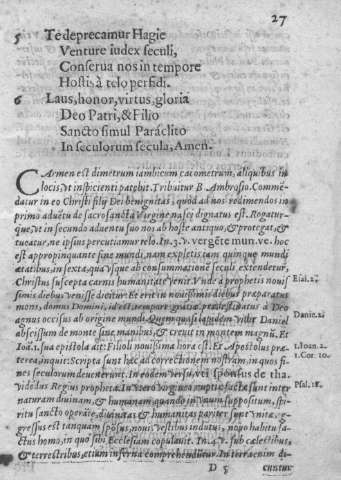 27
5 Te deprecamur Hagie
Venture iudex seculi,
Conserua nos in tempore
Hostis à telo perfidi.
6 Laus, honor, virtus, gloria
Deo Patri, & Filio
Sancto simul Paraclito
In seculorum secula, Amen.
CArmen est dimetrum iambicum catometrum, aliquibus in
locis, vt inspicienti patebit. Tribuitur B. Ambrosio. Commẽ
datur in eo Christi filij Dei benignitas, quòd ad nos redimendos in
primo aduẽtu de sacrosancta Virgine nasci dignatus est. Rogatur-
que, vt in secundo aduentu suo nos ab hoste antiquo, & protegat, &
tueatur, ne ipsius percutiamur telo. In .3. v. vergẽte mun. ve. hoc
est appropinquante fine mundi, nam expletis tam quinque mundi
ætatibus, in sexta, quæ vsque ab consummationẽ seculi extenditur,
Christus suscepta carnis humanitate venit. Vnde à prophetis nouis
simis diebus venisse dicitur. Et erit in nouissimis diebus præparatus Esai. 2.
mons, domus Domini, idest, tempore gratiæ
agnus occisus ab origine mundi. Daniel Danie. 2.
abscissum de monte sine manibus, & creuit in montem magnũ. Et
Ioã. 1. sua epistola ait: Filioli nouissima hora est. Et Apostolus præ- 1. Ioan. 2.
terea inquit: Scripta sunt hæc ad correctionem nostram, in quos fi- 1. Cor. 10.
nes seculorum deuenerunt. In eodem versu, vti sponsus de tha.
vide dus Regius propheta. In vtero virginea nuptiæ factæ sunt inter Psal. 18.
naturam diuinam, & humanam quando in vnum suppositum, spi-
ritu sancto operãte, diuinitas & humanitas pariter sunt vnitæ. e-
gressus est tanquam sponsus, noui vestibus indutus, nouo habitu fa-
ctus homo, in quo sibi Ecclesiam copulauit. In .4. v. sub cælestibus,
& terrestribus, etiam inferna comprehenduntur. In terræ enim di-
D 5 cuntur